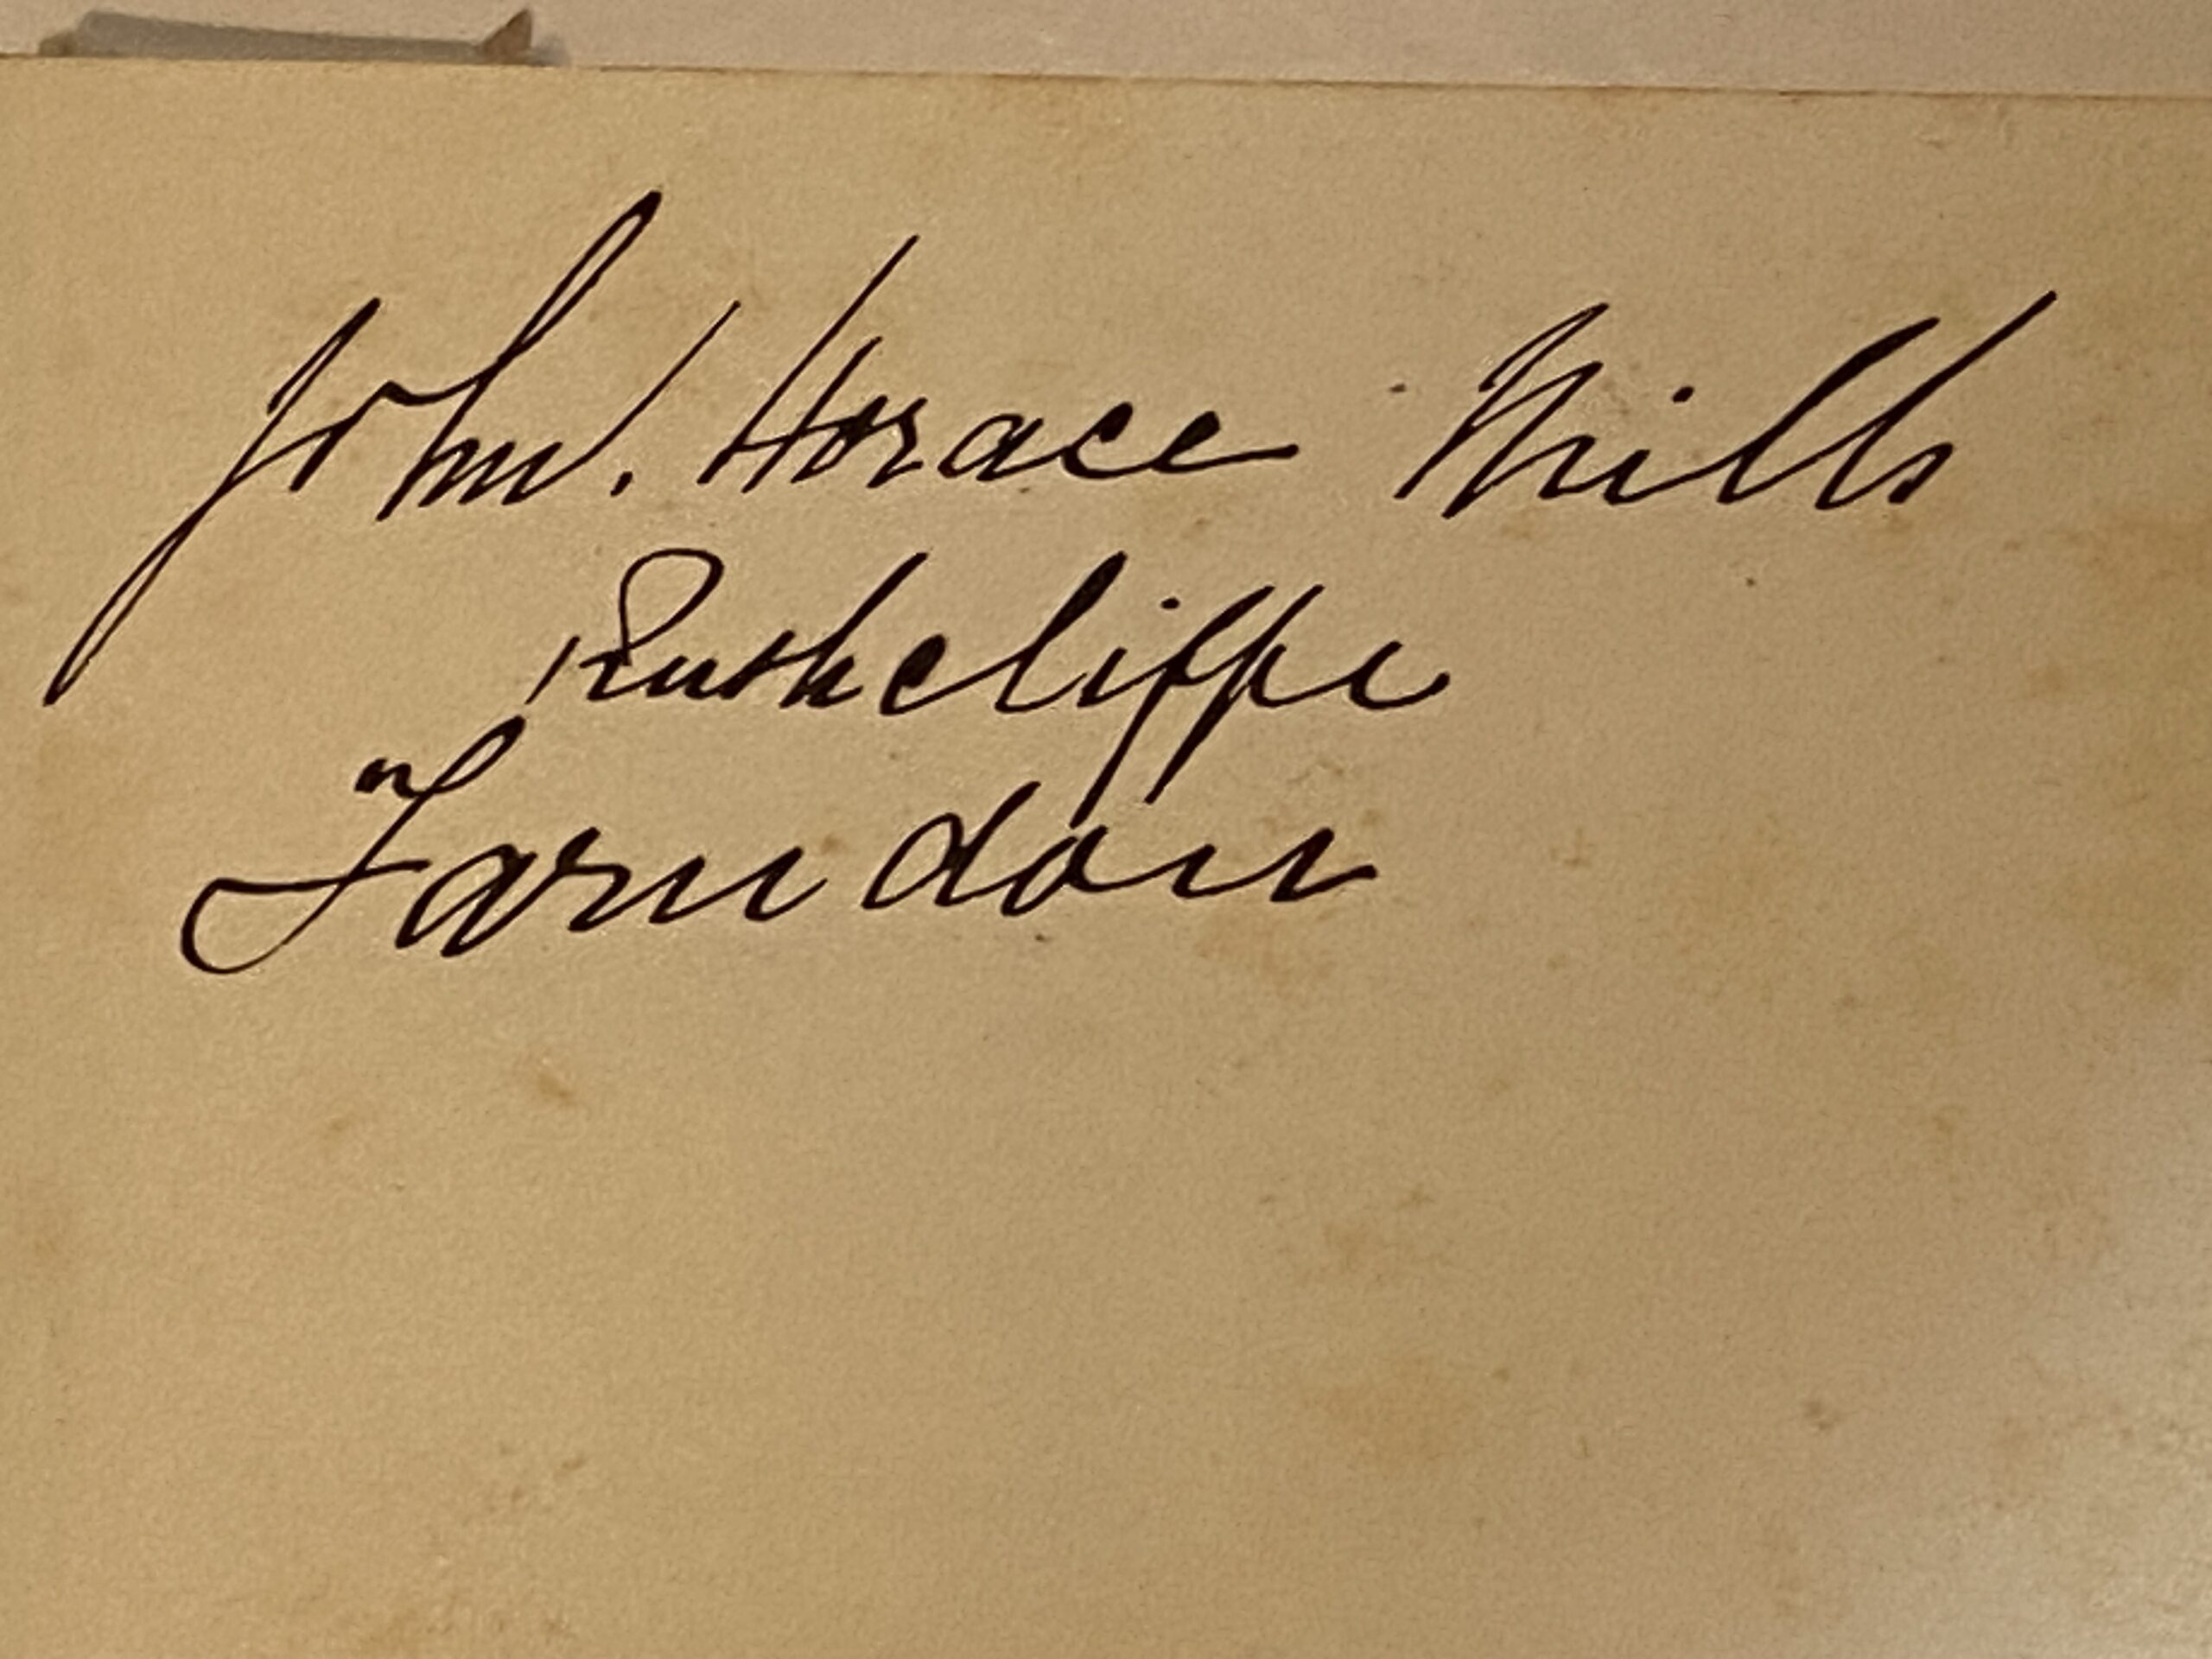 John. Horace Mills
Rushcliffe
Farndon